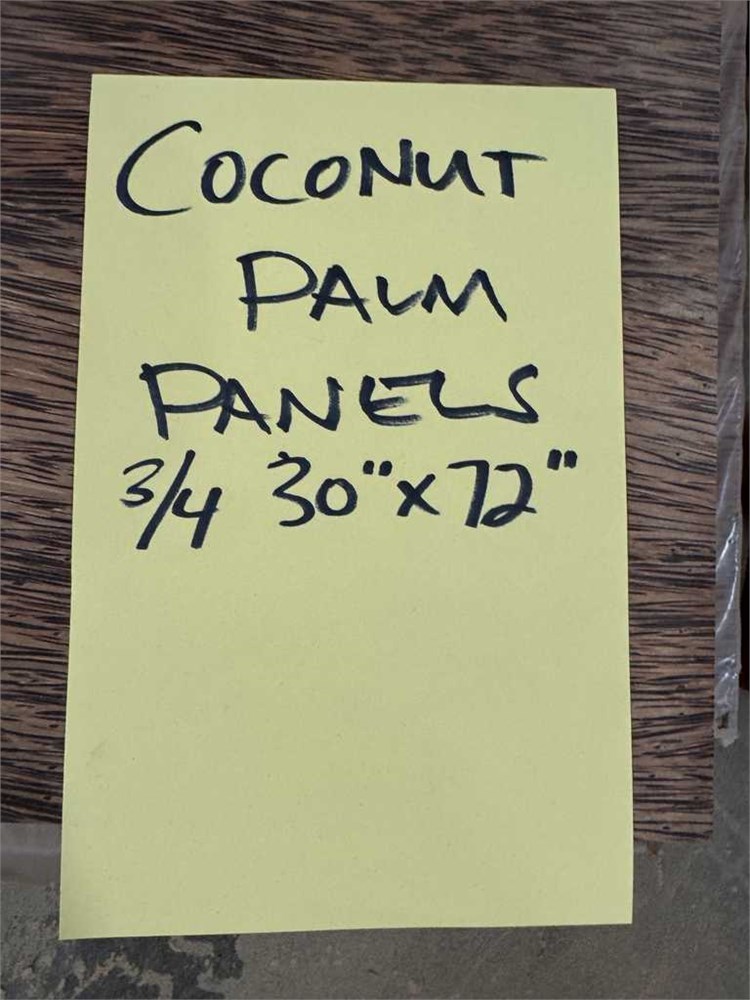 COCONUT
PALM
PANELS
3/4 30" x 72"